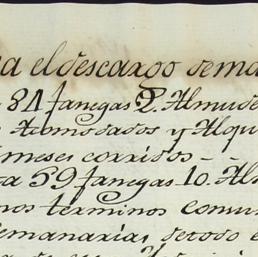 a el descargo dema
81 fanegas 2. Almude
Acomodados y Alqu
meses corridos - -
a 59 fanegas 10. Al
nos terminos comu
emanarias, de todo e